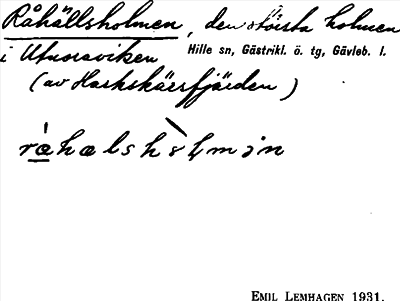 Råhällsholmen, den största holmen
i Utnoraviken Hille sn, Gästrikl. ö. tg, Gävleb. l.
(av Harkskärsfjärden)
EMIL LEMHAGEN 1931.